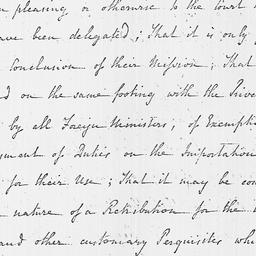 pleasing or otherwise to the Court
have been delegated; That it is only
Conclusion of their Mission; That
on the same footing with the
by all Foreign Ministers, of Exemption
of Duties on the Importation
for their Use; That it may be
nature of a Retribution for the
and other customary Perquisites